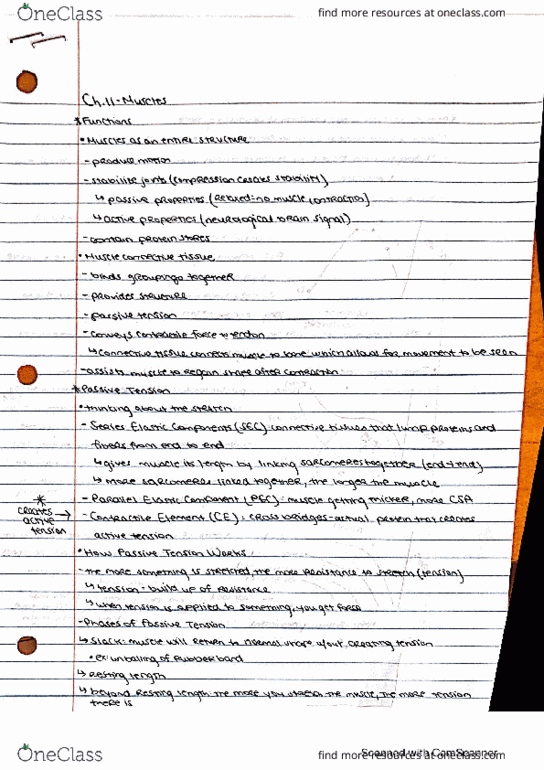 OneClass
find more resources at oneclass.com
Ch.11-Muscles
* Functions
• Muscles as an entire structure
- produce motion
- stabilize joints (compression creates stability)
↳ passive properties (relaxed=no muscle contraction)
↳ active properties (neurological brain signal)
- contain protein stores
• Muscle connective tissue
- binds groups together
- provides structure
- passive tension
- conveys contractile force to tendon
↳ connective tissue connects muscle to bone which allows for movement to be seen
- assists muscle to regain shape after contraction
* Passive Tension
• thinking about the stretch
- Series Elastic Components (SEC) connective tissues that link proteins and
fibers from end to end
↳ gives muscle its length by linking sarcomeres together (end + end)
↳ more sarcomeres linked together, the longer the muscle
- Parallel Elastic Component (PEC): muscle getting thicker, more CSA
* creates active tension →
- Contractile Element (CE): cross bridges - actual protein that creates
active tension
• How Passive Tension Works:
- the more something is stretched, the more resistance to stretch (tension)
↳ tension - build up of resistance
↳ when tension is applied to something, you get force
- Phases of Passive Tension
↳ Slack: muscle will return to normal shape w/out creating tension
• ex: unballing of rubber band
↳ Resting length
↳ beyond resting length the more you stretch the muscle, the more tension
there is
OneClass
find more resources at oneclass.com
Scanned with CamScanner